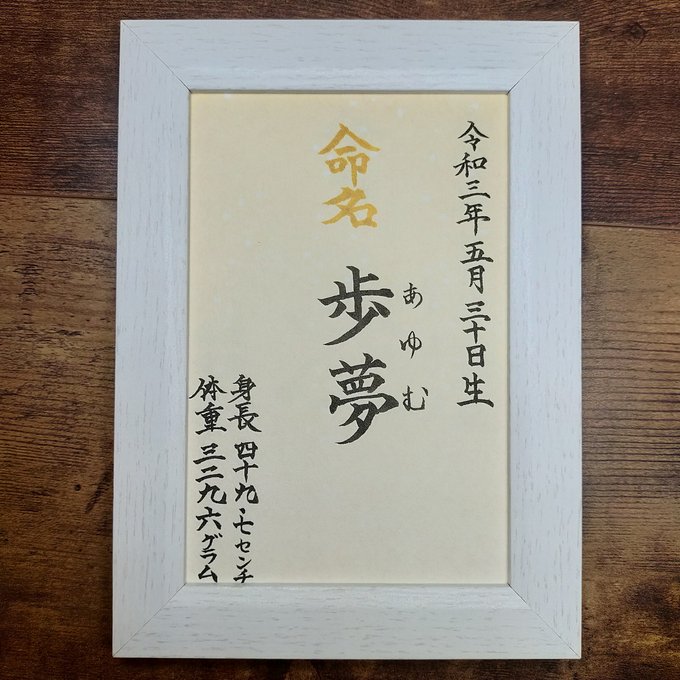 令和三年五月三十日生
命名
歩夢
あゆむ
身長 四十九・七センチ
体重 三二九六グラム